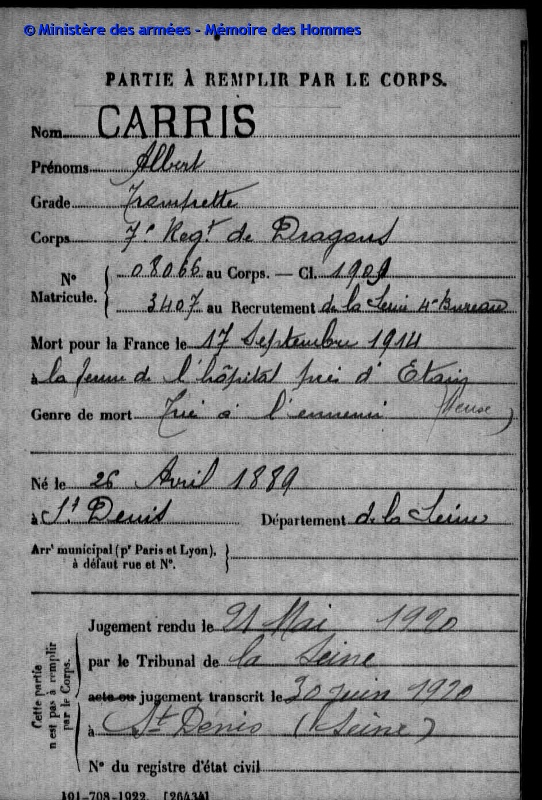 © Ministère des armées - Mémoire des Hommes
PARTIE À REMPLIR PAR LE CORPS.
Nom CARRIS
Prénoms Albert
Grade Trompette
Corps 7e Regt. de Dragons
No Matricule. { 08066 au Corps. — Cl. 1909
3407 au Recrutement de la Seine 4e Bureau
Mort pour la France le 17 Septembre 1914
à la ferme de l'hôpital près d'Etain
(Meuse)
Genre de mort Tué à l'ennemi
Né le 26 Avril 1889
à St Denis Département de la Seine
Arrt municipal (pr Paris et Lyon), }
à défaut rue et No.
Cette partie
n'est pas à remplir
par le Corps.
Jugement rendu le 21 Mai 1920
par le Tribunal de la Seine
acte ou jugement transcrit le 30 juin 1920
à St Denis (Seine)
No du registre d'état civil
101-708-1922. [26434]